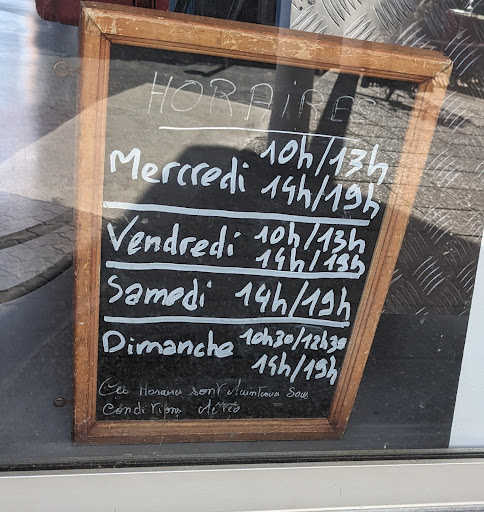 HORAIRES
Mercredi 10h/13h
14h/19h
Vendredi 10h/13h
14h/19h
Samedi 14h/19h
Dimanche 10h30/12h30
14h/19h
Ces Horaires sont maintenus Sous
Condition Météo